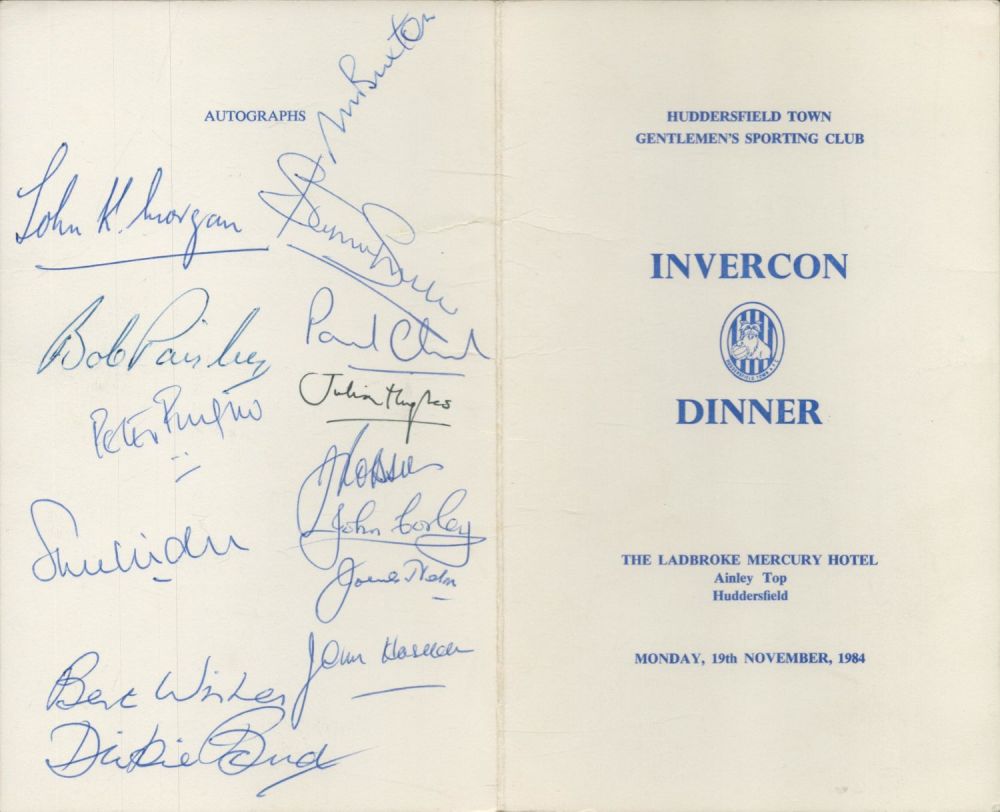 AUTOGRAPHS
M Buxton
John K. Morgan
Bob Paisley
Paul
Peter
Julian Hughes
J Robson
John Corley
James
John
Best Wishes
Dickie Bird
HUDDERSFIELD TOWN
GENTLEMEN'S SPORTING CLUB
INVERCON
HUDDERSFIELD TOWN
DINNER
THE LADBROKE MERCURY HOTEL
Ainley Top
Huddersfield
MONDAY, 19th NOVEMBER, 1984